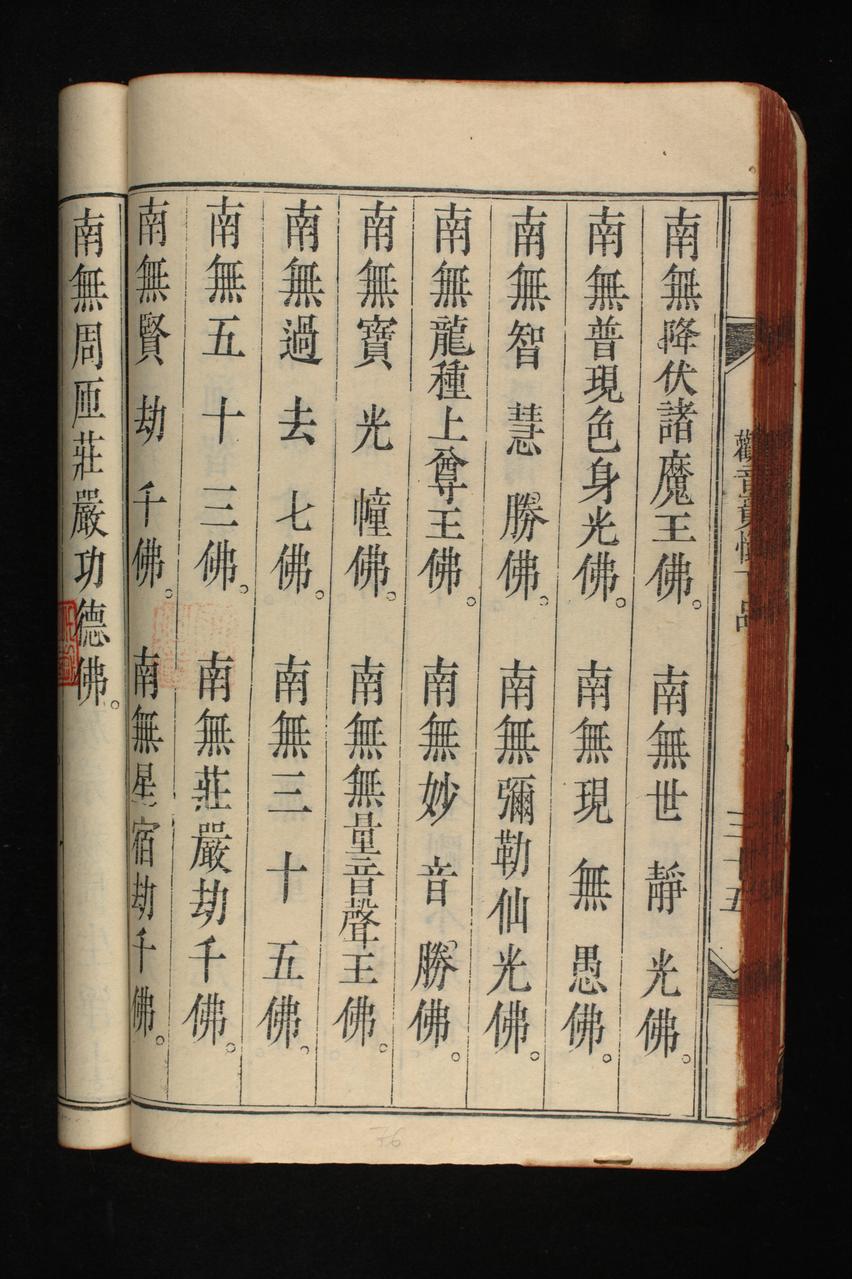 南無降伏諸魔王佛。 南無世靜光佛。
南無普現色身光佛。 南無現無愚佛。
南無智慧勝佛。 南無彌勒仙光佛。
南無龍種上尊王佛。 南無妙音勝佛。
南無寶光幢佛。 南無無量音聲王佛。
南無過去七佛。 南無三十五佛。
南無五十三佛。 南無莊嚴劫千佛。
南無賢劫千佛。 南無星宿劫千佛。
南無周匝莊嚴功德佛。
觀音
品
三十五